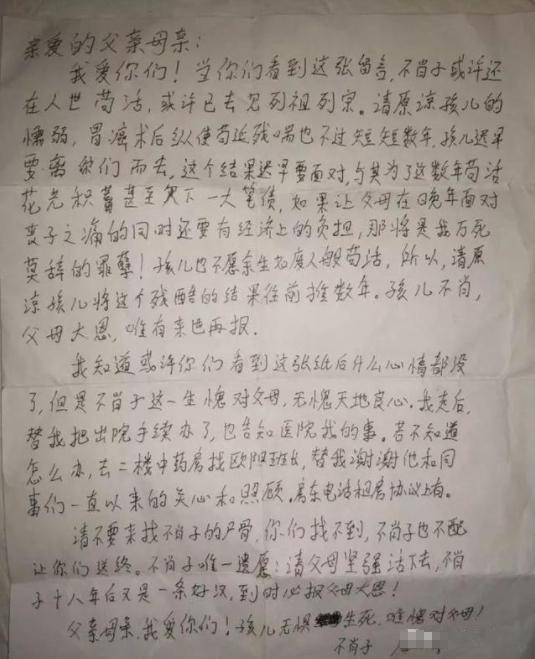 亲爱的父亲母亲：
我爱你们！当你们看到这张留言，不肖子或许还
在人世苟活，或许已去见列祖列宗。请原谅孩儿的
懦弱，胃癌术后纵使苟延残喘也不过短短数年，孩儿迟早
要离你们而去，这个结果迟早要面对，与其为了这数年苟活
花光积蓄甚至欠下一大笔债，如果让父母在晚年面对
丧子之痛的同时还要有经济上的负担，那将是我万死
莫辞的罪孽！孩儿也不愿余生如废人般苟活，所以，请原
谅孩儿将这个残酷的结果往前推数年。孩儿不肖，
父母大恩，唯有来世再报。
我知道或许你们看到这张纸后什么心情都没
了，但是不肖子这一生愧对父母，无愧天地良心。我走后，
替我把出院手续办了，也告知医院我的事。若不知道
怎么办，去二楼中药房找欧阳班长，替我谢谢他和同
事们一直以来的关心和照顾。房东电话租房协议上有。
请不要来找不肖子的尸骨，你们找不到，不肖子也不配
让你们送终。不肖子唯一遗愿：请父母坚强活下去，不肖
子十八年后又是一条好汉，到时必报父母大恩！
父亲母亲，我爱你们！孩儿无惧生死，唯愧对父母！
不肖子